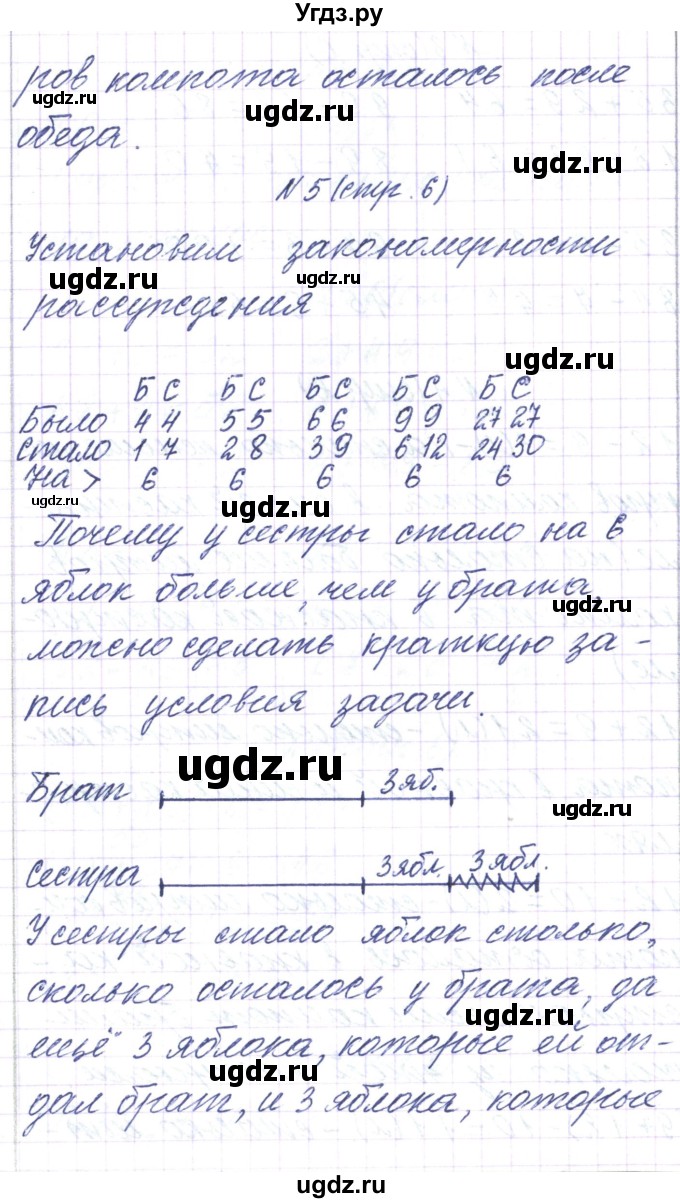 Угдз.ру
ров компота осталось после
обеда.
N 5 (стр. 6)
Установим закономерности
рассуждения
Б С Б С Б С Б С Б С
Было 4 4 5 5 6 6 9 9 27 27
Стало 1 7 2 8 3 9 6 12 24 30
На > 6 6 6 6 6
Почему у сестры стало на 6
яблок больше, чем у брата,
можно сделать краткую за-
пись условия задачи.
Брат 3 яб.
Сестра 3 ябл. 3 ябл.
У сестры стало яблок столько,
сколько осталось у брата, да
ещё 3 яблока, которые ей от-
дал брат, и 3 яблока, которые
ugdz.ru
ugdz.ru
ugdz.ru
ugdz.ru
ugdz.ru
ugdz.ru
ugdz.ru
ugdz.ru
ugdz.ru
ugdz.ru
ugdz.ru
ugdz.ru
ugdz.ru